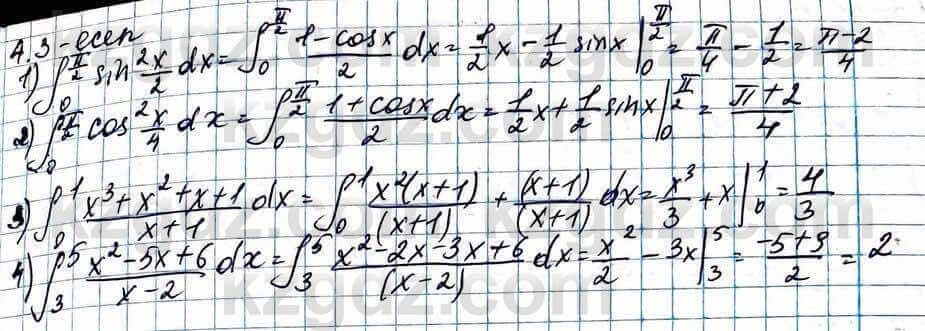 4.3-есеп
1) ∫₀^{π/2} sin² x/2 dx = ∫₀^{π/2} (1-cosx)/2 dx = 1/2 x - 1/2 sinx |₀^{π/2} = π/4 - 1/2 = (π-2)/4
2) ∫₀^{π/2} cos² x/4 dx = ∫₀^{π/2} (1+cosx)/2 dx = 1/2 x + 1/2 sinx |₀^{π/2} = (π+2)/4
3) ∫₀¹ (x³+x²+x+1)/(x+1) dx = ∫₀¹ x²(x+1)/(x+1) + (x+1)/(x+1) dx = x³/3 + x |₀¹ = 4/3
4) ∫₃⁵ (x²-5x+6)/(x-2) dx = ∫₃⁵ (x²-2x-3x+6)/(x-2) dx = x²/2 - 3x |₃⁵ = (-5+9)/2 = 2
kzgdz.com